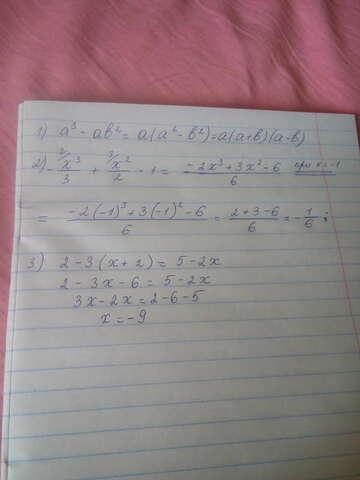 1) a³ - aв² = a(a² - в²) = a(a+в)(a-в)
2) -x³/3 + x²/2 - 1 = (-2x³+3x²-6)/6 при x=-1
= (-2(-1)³+3(-1)²-6)/6 = (2+3-6)/6 = -1/6;
3) 2-3(x+2) = 5-2x
2-3x-6 = 5-2x
3x-2x=2-6-5
x=-9